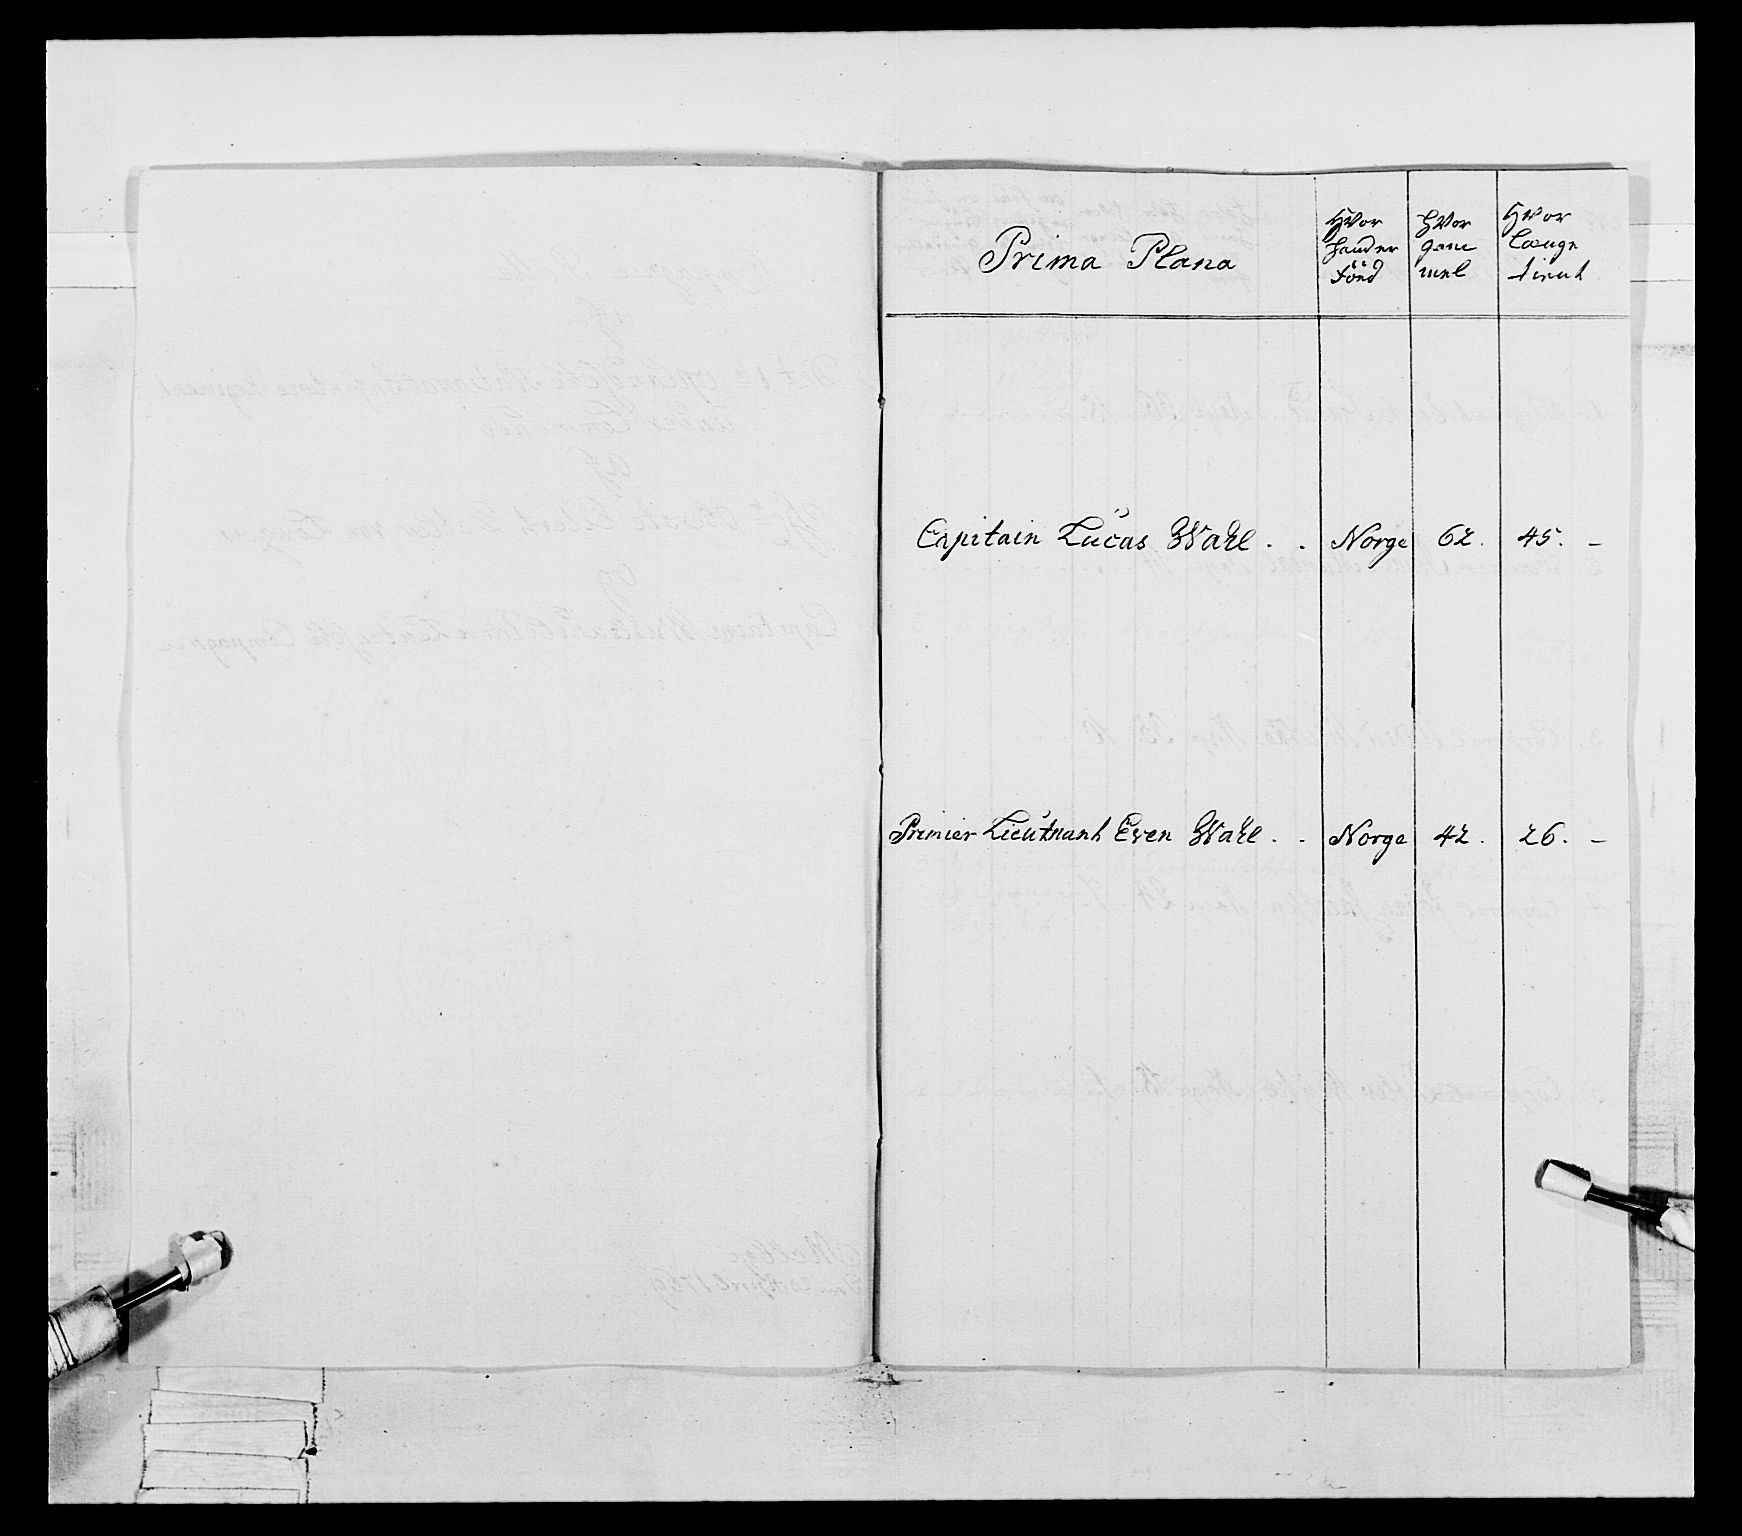 Prima Plana
Hvor
fander
född
Hvor
gam̄el
Hvor
længe
tient
Capitain Lucas Wahl . . Norge 62. 45. -
Premier Lieutnant Even Wahl . . Norge 42. 26. -